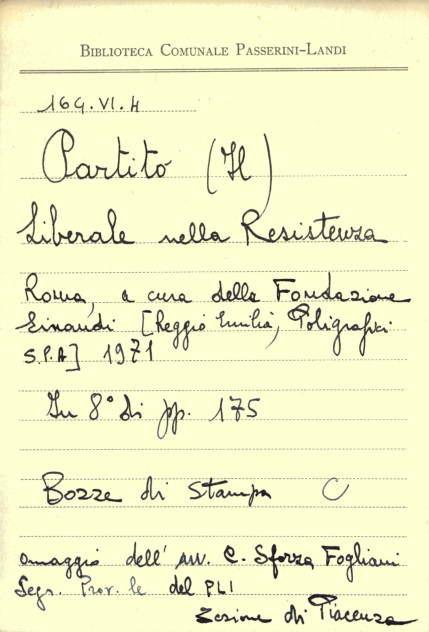 BIBLIOTECA COMUNALE PASSERINI-LANDI
164.VI.4
Partito (Il)
Liberale nella Resistenza
Roma, a cura della Fondazione
Einaudi [Reggio Emilia, Poligrafici
S.P.A] 1971
In 8° di pp. 175
Bozze di stampa C
omaggio dell' avv. C. Sforza Fogliani
Segr. Prov.le del PLI
Sezione di Piacenza